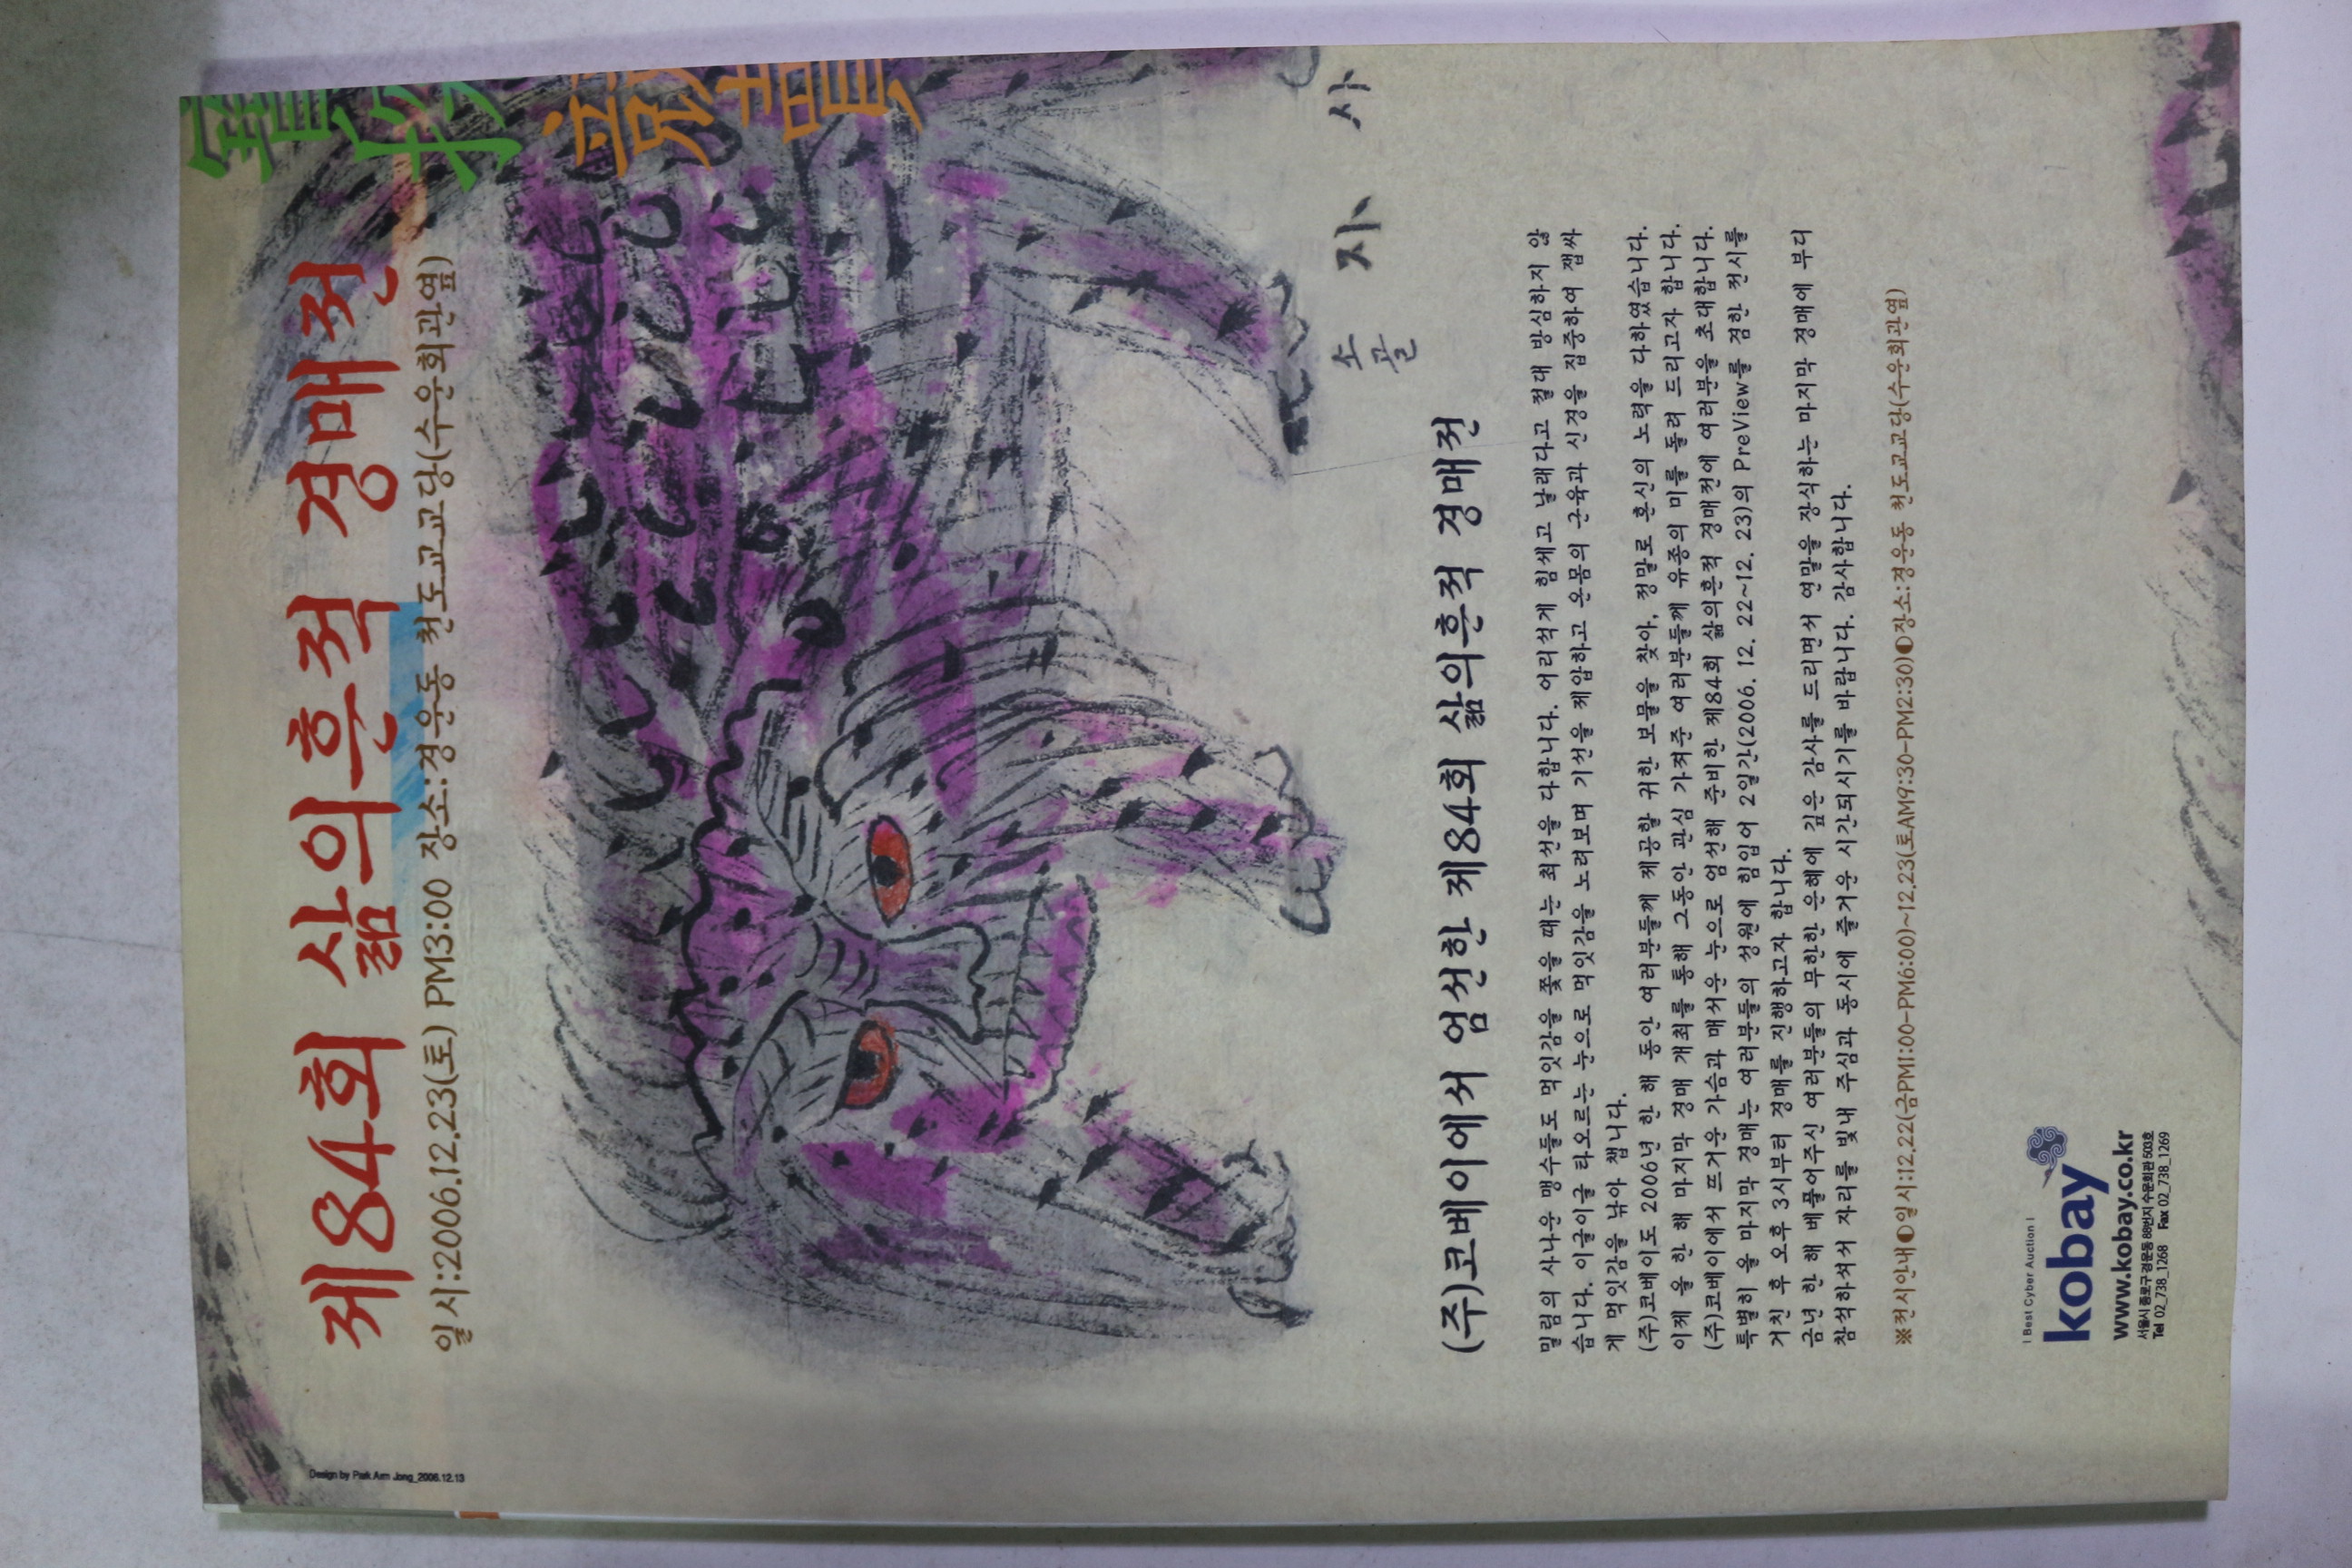 제84회 삶의흔적 경매전
일시:2006.12.23(토) PM3:00 장소:경운동 천도교교당(수운회관옆)
사
자
소
굴
(주)코베이에서 엄선한 제84회 삶의흔적 경매전
밀림의 사나운 맹수들도 먹잇감을 쫓을 때는 최선을 다합니다. 어리석게 힘세고 날래다고 절대 방심하지 않
습니다. 이글이글 타오르는 눈으로 먹잇감을 노려보며 기선을 제압하고 온몸의 근육과 신경을 집중하여 잽싸
게 먹잇감을 낚아 챕니다.
(주)코베이도 2006년 한 해 동안 여러분들께 제공할 귀한 보물을 찾아, 정말로 혼신의 노력을 다하였습니다.
이제 올 한 해 마지막 경매 개최를 통해 그동안 관심 가져주 여러분들께 유종의 미를 돌려 드리고자 합니다.
(주)코베이에서 뜨거운 가슴과 매서운 눈으로 엄선해 준비한 제84회 삶의흔적 경매전에 여러분을 초대합니다.
특별히 올 마지막 경매는 여러분들의 성원에 힘입어 2일간(2006. 12. 22~12. 23)의 PreView를 겸한 전시를
거친 후 오후 3시부터 경매를 진행하고자 합니다.
금년 한 해 베풀어주신 여러분들의 무한한 은혜에 깊은 감사를 드리면서 연말을 장식하는 마지막 경매에 부디
참석하셔서 자리를 빛내 주심과 동시에 즐거운 시간되시기를 바랍니다. 감사합니다.
※전시안내◐일시:12.22(금PM1:00-PM6:00)~12.23(토AM9:30-PM2:30)◐장소:경운동 천도교교당(수운회관옆)
| Best Cyber Auction |
kobay
www.kobay.co.kr
서울시 종로구 경운동 88번지 수운회관 503호
Tel 02_738_1268 Fax 02_738_1269
Design by Park Arm Jong_2006.12.13